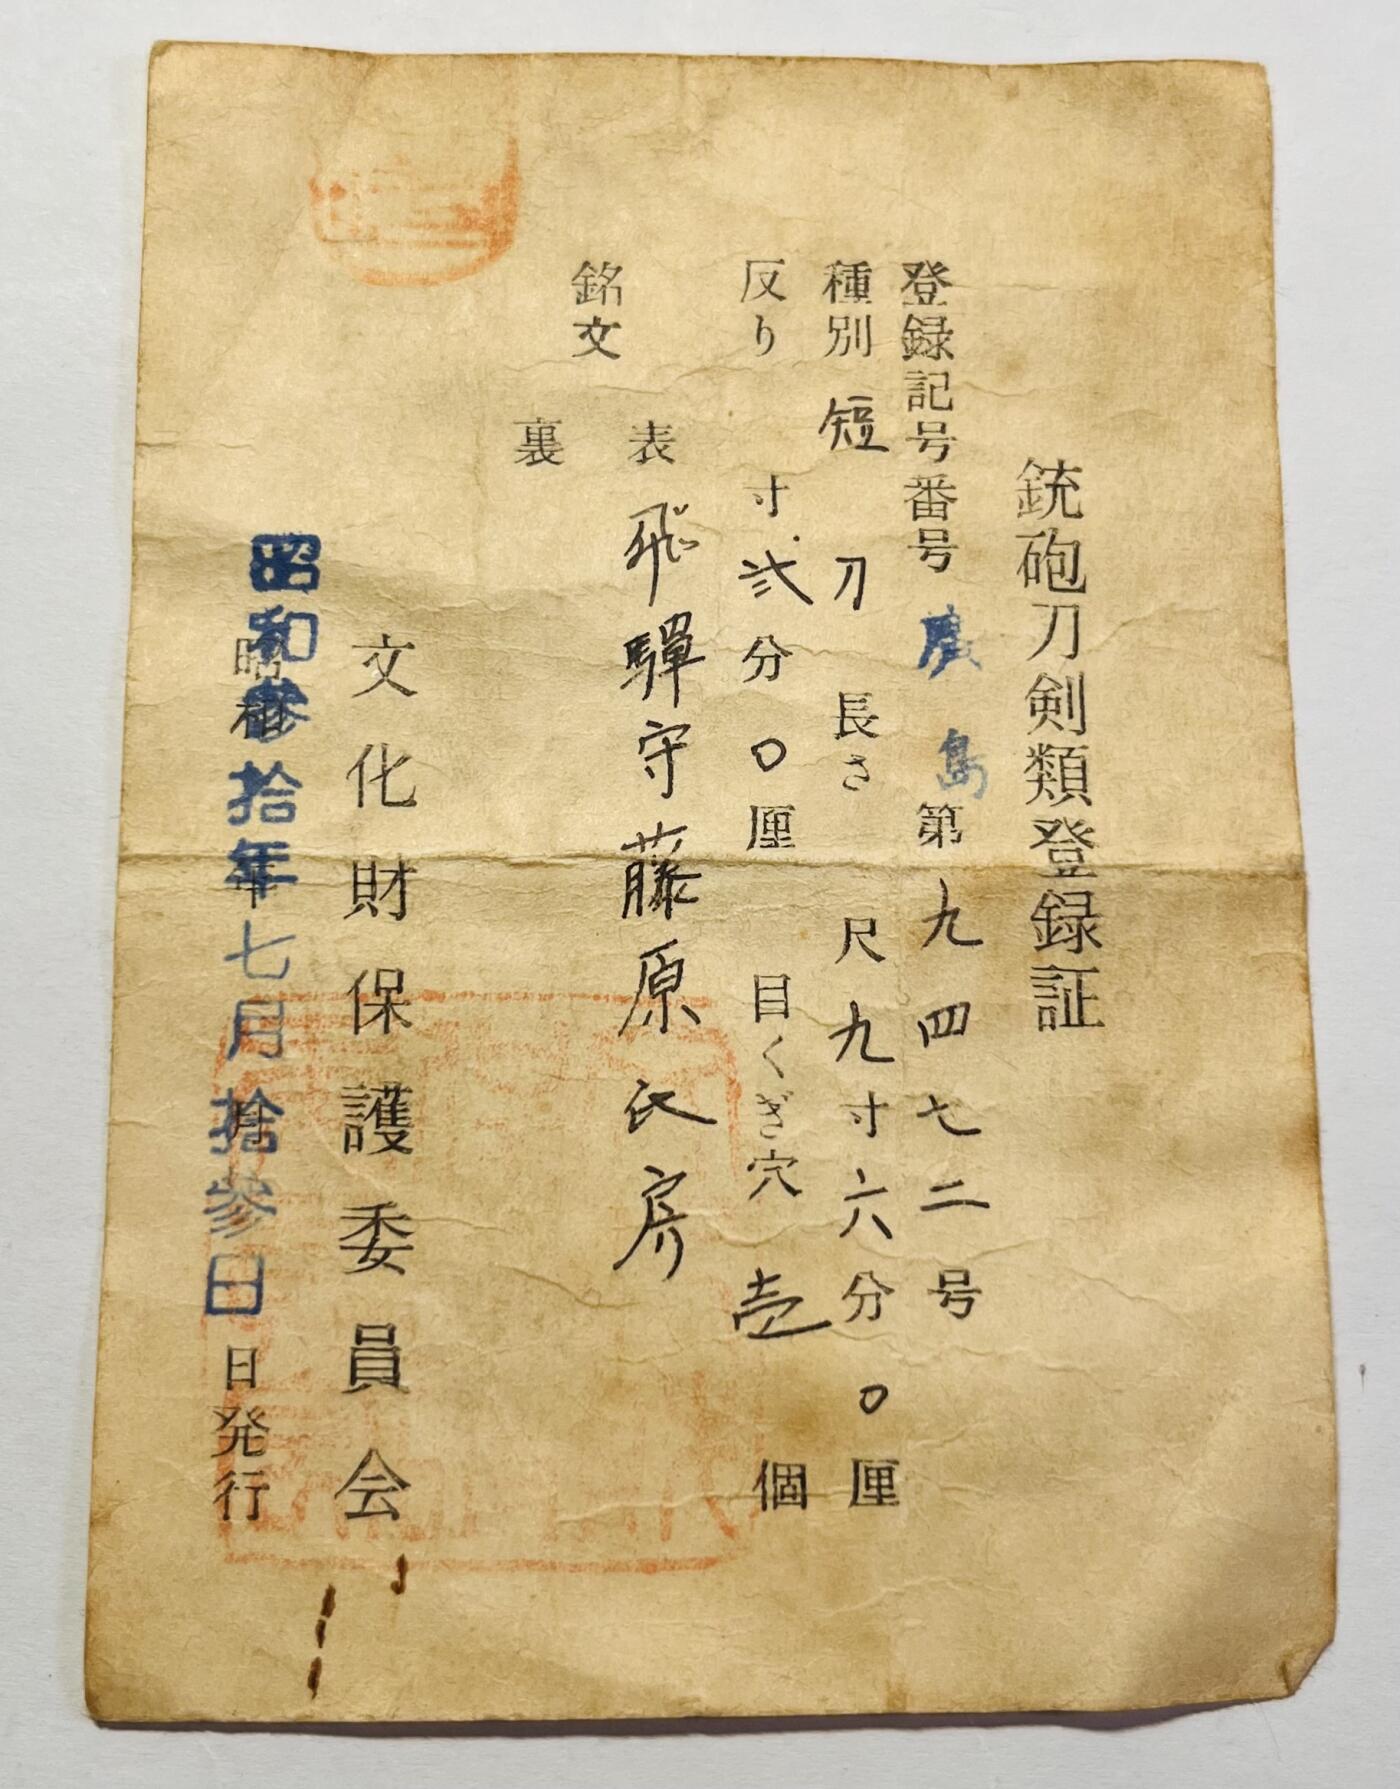 銃砲刀剣類登録証
登録記号番号 廣島 第九四七二号
種別 短 刀 長さ 尺九寸六分〇厘
反り 寸弐分〇厘 目くぎ穴 壱 個
銘文
表 飛騨守藤原氏房
裏
文化財保護委員会
昭和参拾年七月拾参日
昭和 年 月 日発行